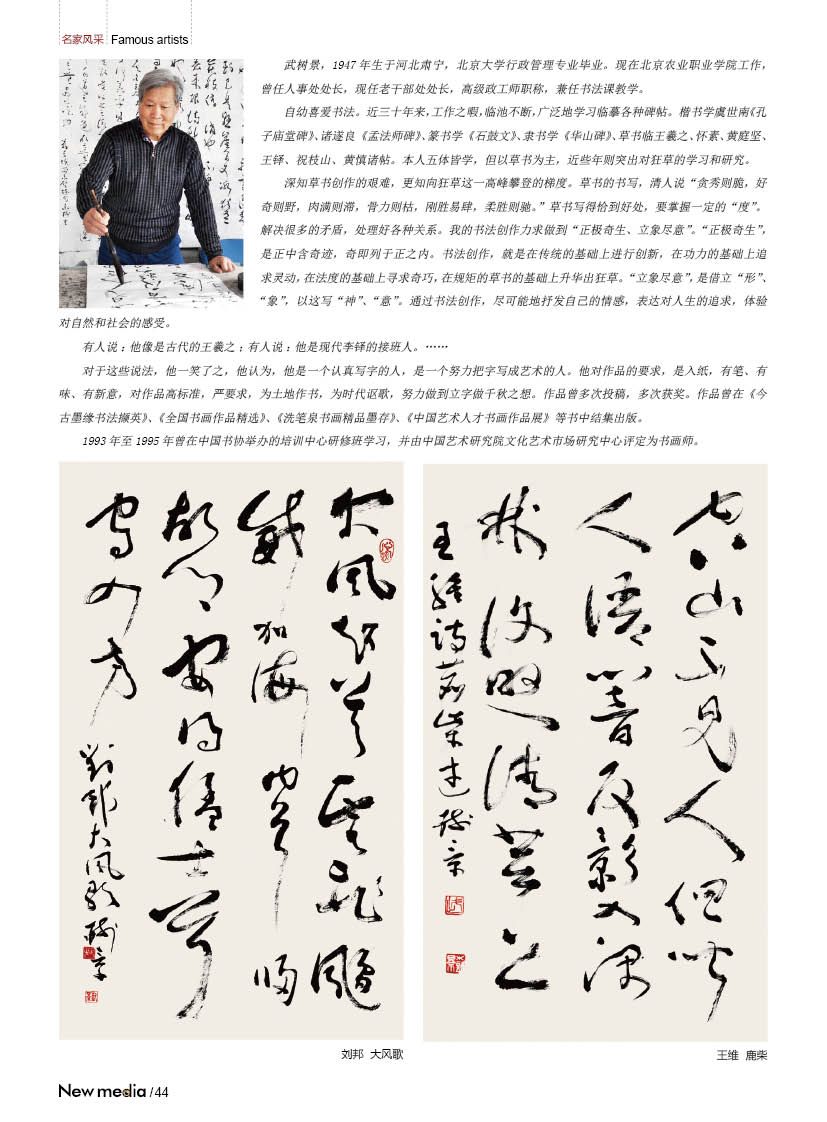 名家风采 Famous artists
武树景，1947 年生于河北肃宁，北京大学行政管理专业毕业。现在北京农业职业学院工作，
曾任人事处处长，现任老干部处处长，高级政工师职称，兼任书法课教学。
自幼喜爱书法。近三十年来，工作之暇，临池不断，广泛地学习临摹各种碑帖。楷书学虞世南《孔
子庙堂碑》、诸遂良《孟法师碑》、篆书学《石鼓文》、隶书学《华山碑》、草书临王羲之、怀素、黄庭坚、
王铎、祝枝山、黄慎诸帖。本人五体皆学，但以草书为主，近些年则突出对狂草的学习和研究。
深知草书创作的艰难，更知向狂草这一高峰攀登的梯度。草书的书写，清人说“贪秀则脆，好
奇则野，肉满则滞，骨力则枯，刚胜易肆，柔胜则驰。”草书写得恰到好处，要掌握一定的“度”。
解决很多的矛盾，处理好各种关系。我的书法创作力求做到“正极奇生、立象尽意”。“正极奇生”，
是正中含奇迹，奇即列于正之内。书法创作，就是在传统的基础上进行创新，在功力的基础上追
求灵动，在法度的基础上寻求奇巧，在规矩的草书的基础上升华出狂草。“立象尽意”，是借立“形”、
“象”，以这写“神”、“意”。通过书法创作，尽可能地抒发自己的情感，表达对人生的追求，体验
对自然和社会的感受。
有人说：他像是古代的王羲之；有人说：他是现代李铎的接班人。……
对于这些说法，他一笑了之，他认为，他是一个认真写字的人，是一个努力把字写成艺术的人。他对作品的要求，是入纸，有笔、有
味、有新意，对作品高标准，严要求，为土地作书，为时代讴歌，努力做到立字做千秋之想。作品曾多次投稿，多次获奖。作品曾在《今
古墨缘书法撷英》、《全国书画作品精选》、《洗笔泉书画精品墨存》、《中国艺术人才书画作品展》等书中结集出版。
1993 年至 1995 年曾在中国书协举办的培训中心研修班学习，并由中国艺术研究院文化艺术市场研究中心评定为书画师。
大风起兮云飞飏
威加海内兮归
故乡安得猛士兮
守四方
刘邦大风歌 树景
空山不见人但闻
人语响返景入深
林复照青苔上
王维诗鹿柴 树景
刘邦 大风歌
王维 鹿柴
New media /44